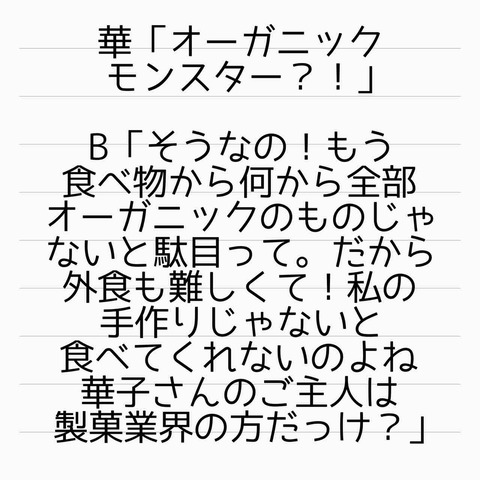 華「オーガニック
モンスター？！」
B「そうなの！もう
食べ物から何から全部
オーガニックのものじゃ
ないと駄目って。だから
外食も難しくて！私の
手作りじゃないと
食べてくれないのよね
華子さんのご主人は
製菓業界の方だっけ？」